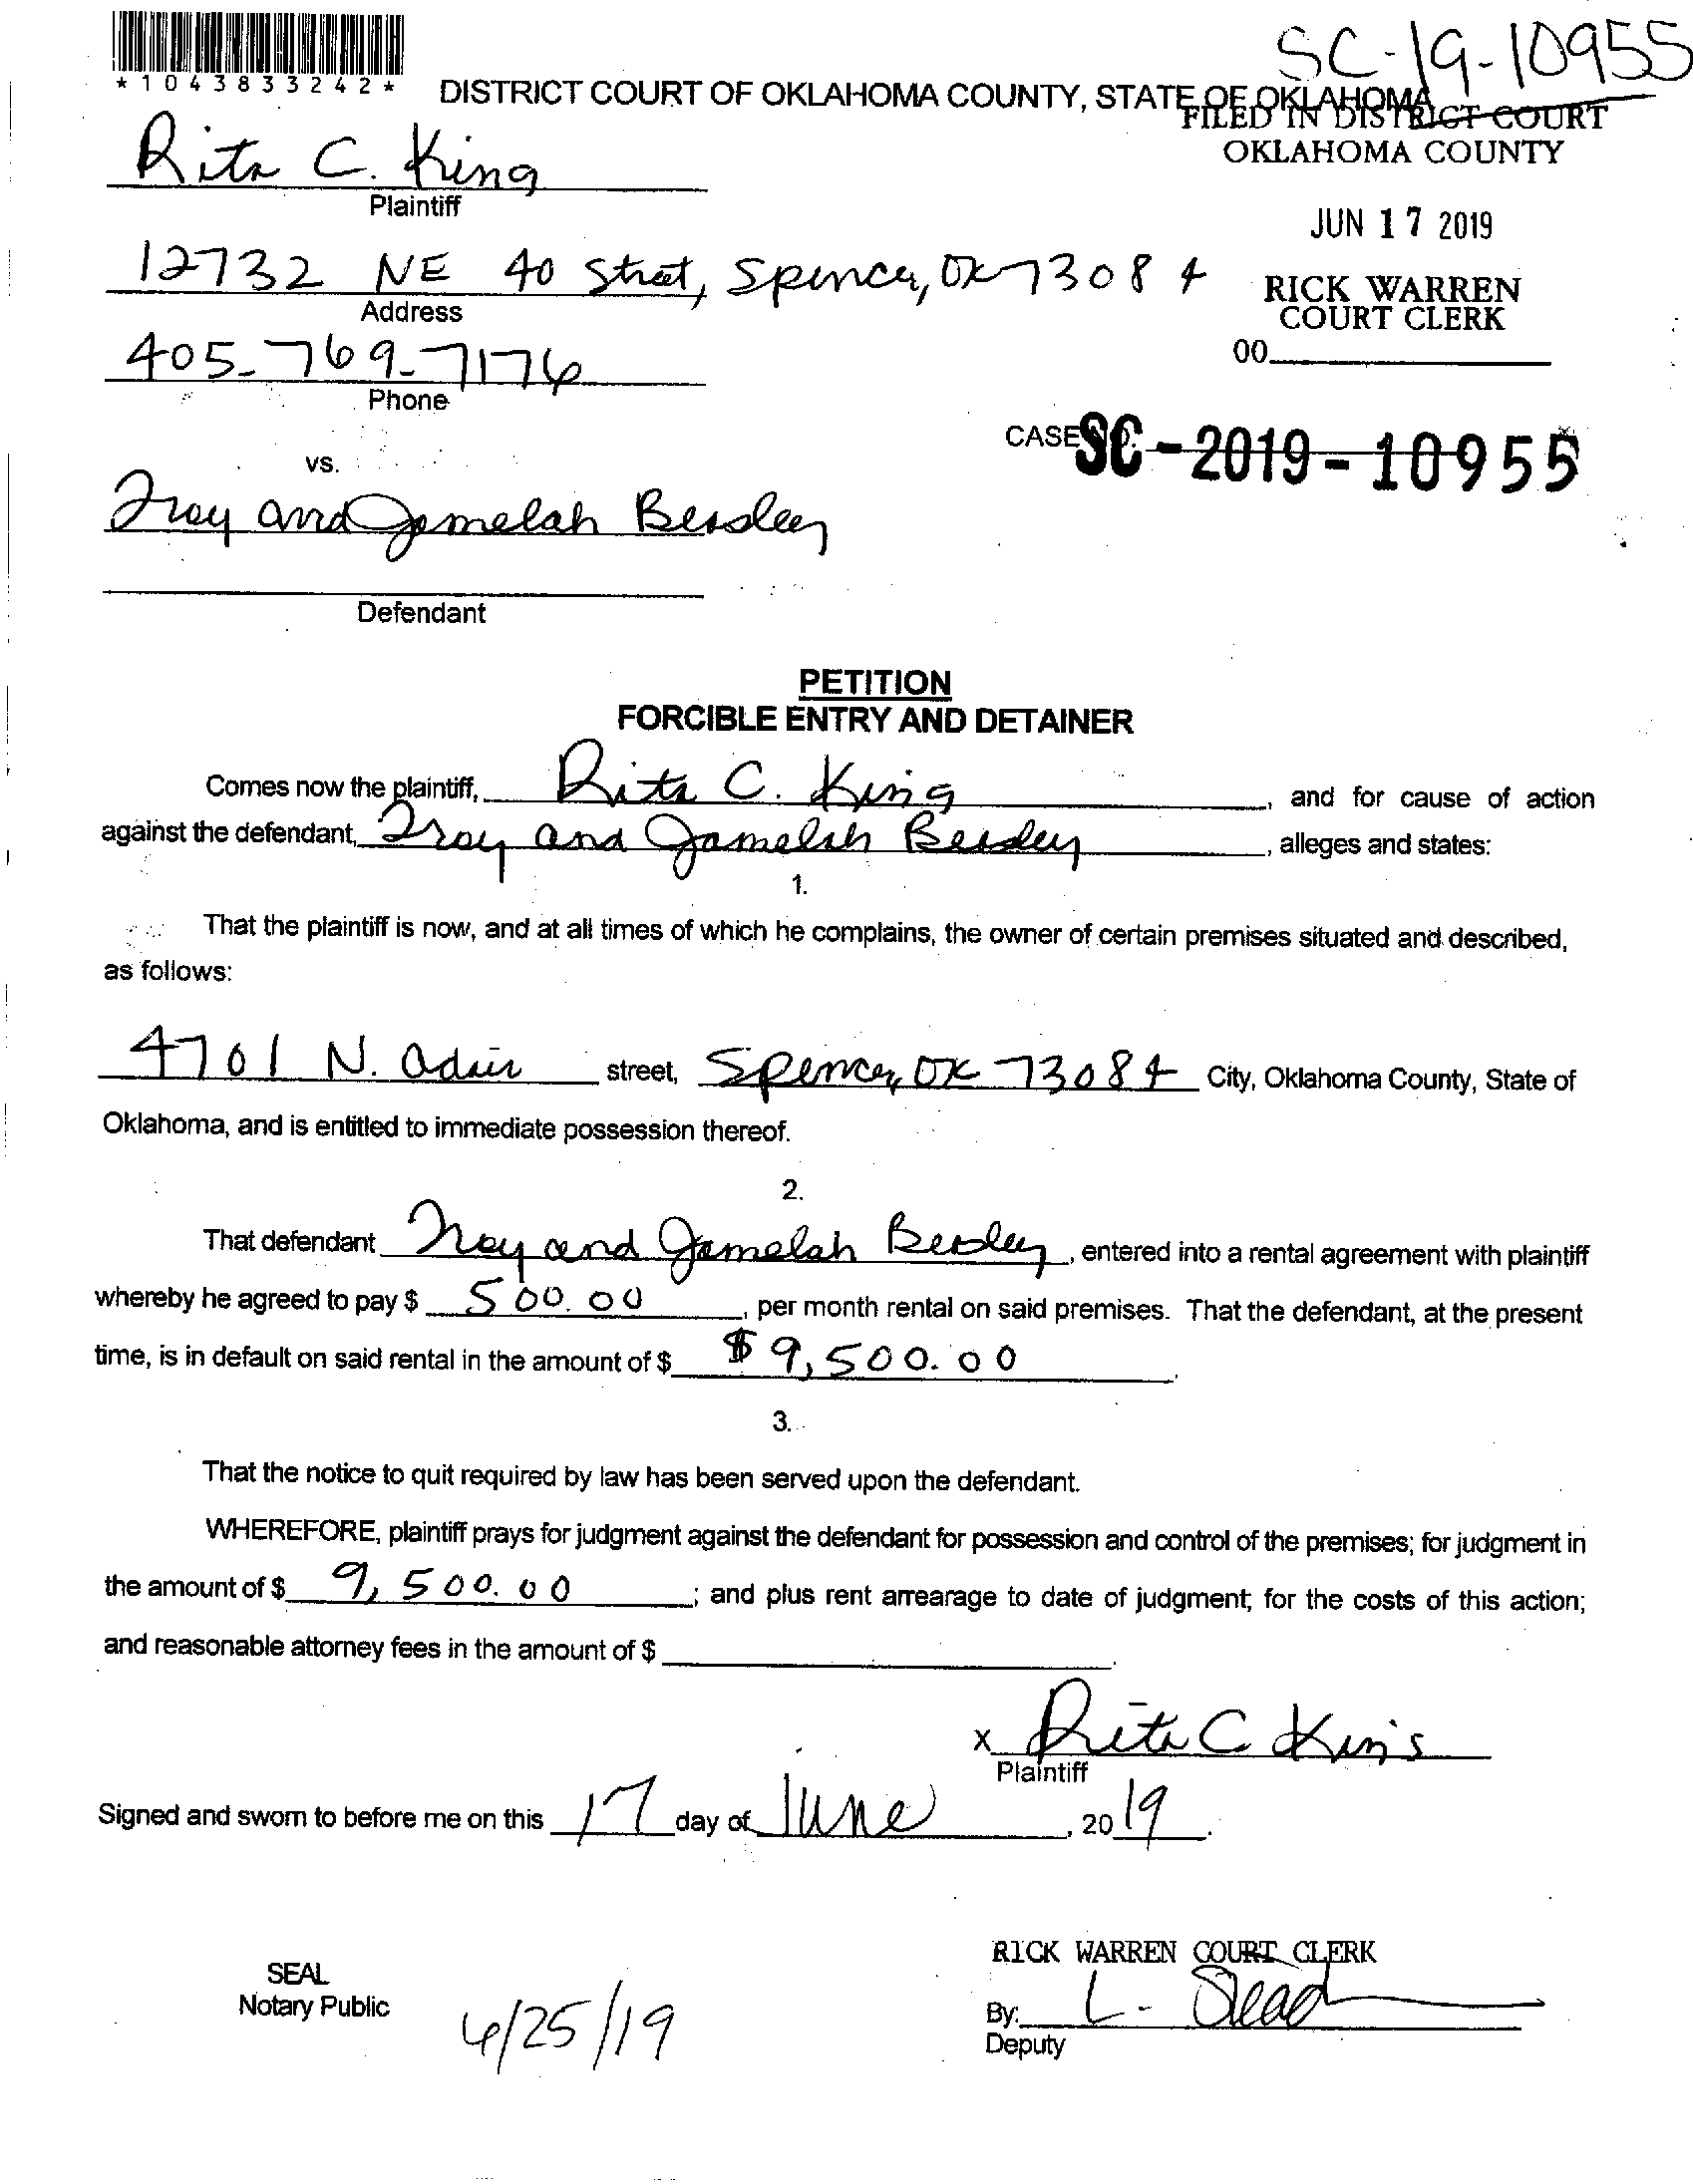 SC-19-10955
*1043833242*
DISTRICT COURT OF OKLAHOMA COUNTY, STATE OF OKLAHOMA
FILED IN DISTRICT COURT
OKLAHOMA COUNTY
Rita C. King
Plaintiff
JUN 17 2019
12732 NE 40 Street, Spencer, OK 73084
Address
RICK WARREN
COURT CLERK
405-769-7176
Phone
00
CASE NO. SC-2019-10955
vs.
Troy and Jamelah
Defendant
PETITION
FORCIBLE ENTRY AND DETAINER
Comes now the plaintiff, Rita C. King, and for cause of action
against the defendant, Troy and Jamelah, alleges and states:
1.
That the plaintiff is now, and at all times of which he complains, the owner of certain premises situated and described,
as follows:
4701 N. Adair street, Spencer, OK 73084 City, Oklahoma County, State of
Oklahoma, and is entitled to immediate possession thereof.
2.
That defendant Troy and Jamelah, entered into a rental agreement with plaintiff
whereby he agreed to pay $ 500.00, per month rental on said premises. That the defendant, at the present
time, is in default on said rental in the amount of $ $9,500.00.
3.
That the notice to quit required by law has been served upon the defendant.
WHEREFORE, plaintiff prays for judgment against the defendant for possession and control of the premises; for judgment in
the amount of $ 9,500.00; and plus rent arrearage to date of judgment; for the costs of this action;
and reasonable attorney fees in the amount of $
X Rita C King
Plaintiff
Signed and sworn to before me on this 17 day of June, 2019.
RICK WARREN COURT CLERK
SEAL
Notary Public
By: L.
Deputy